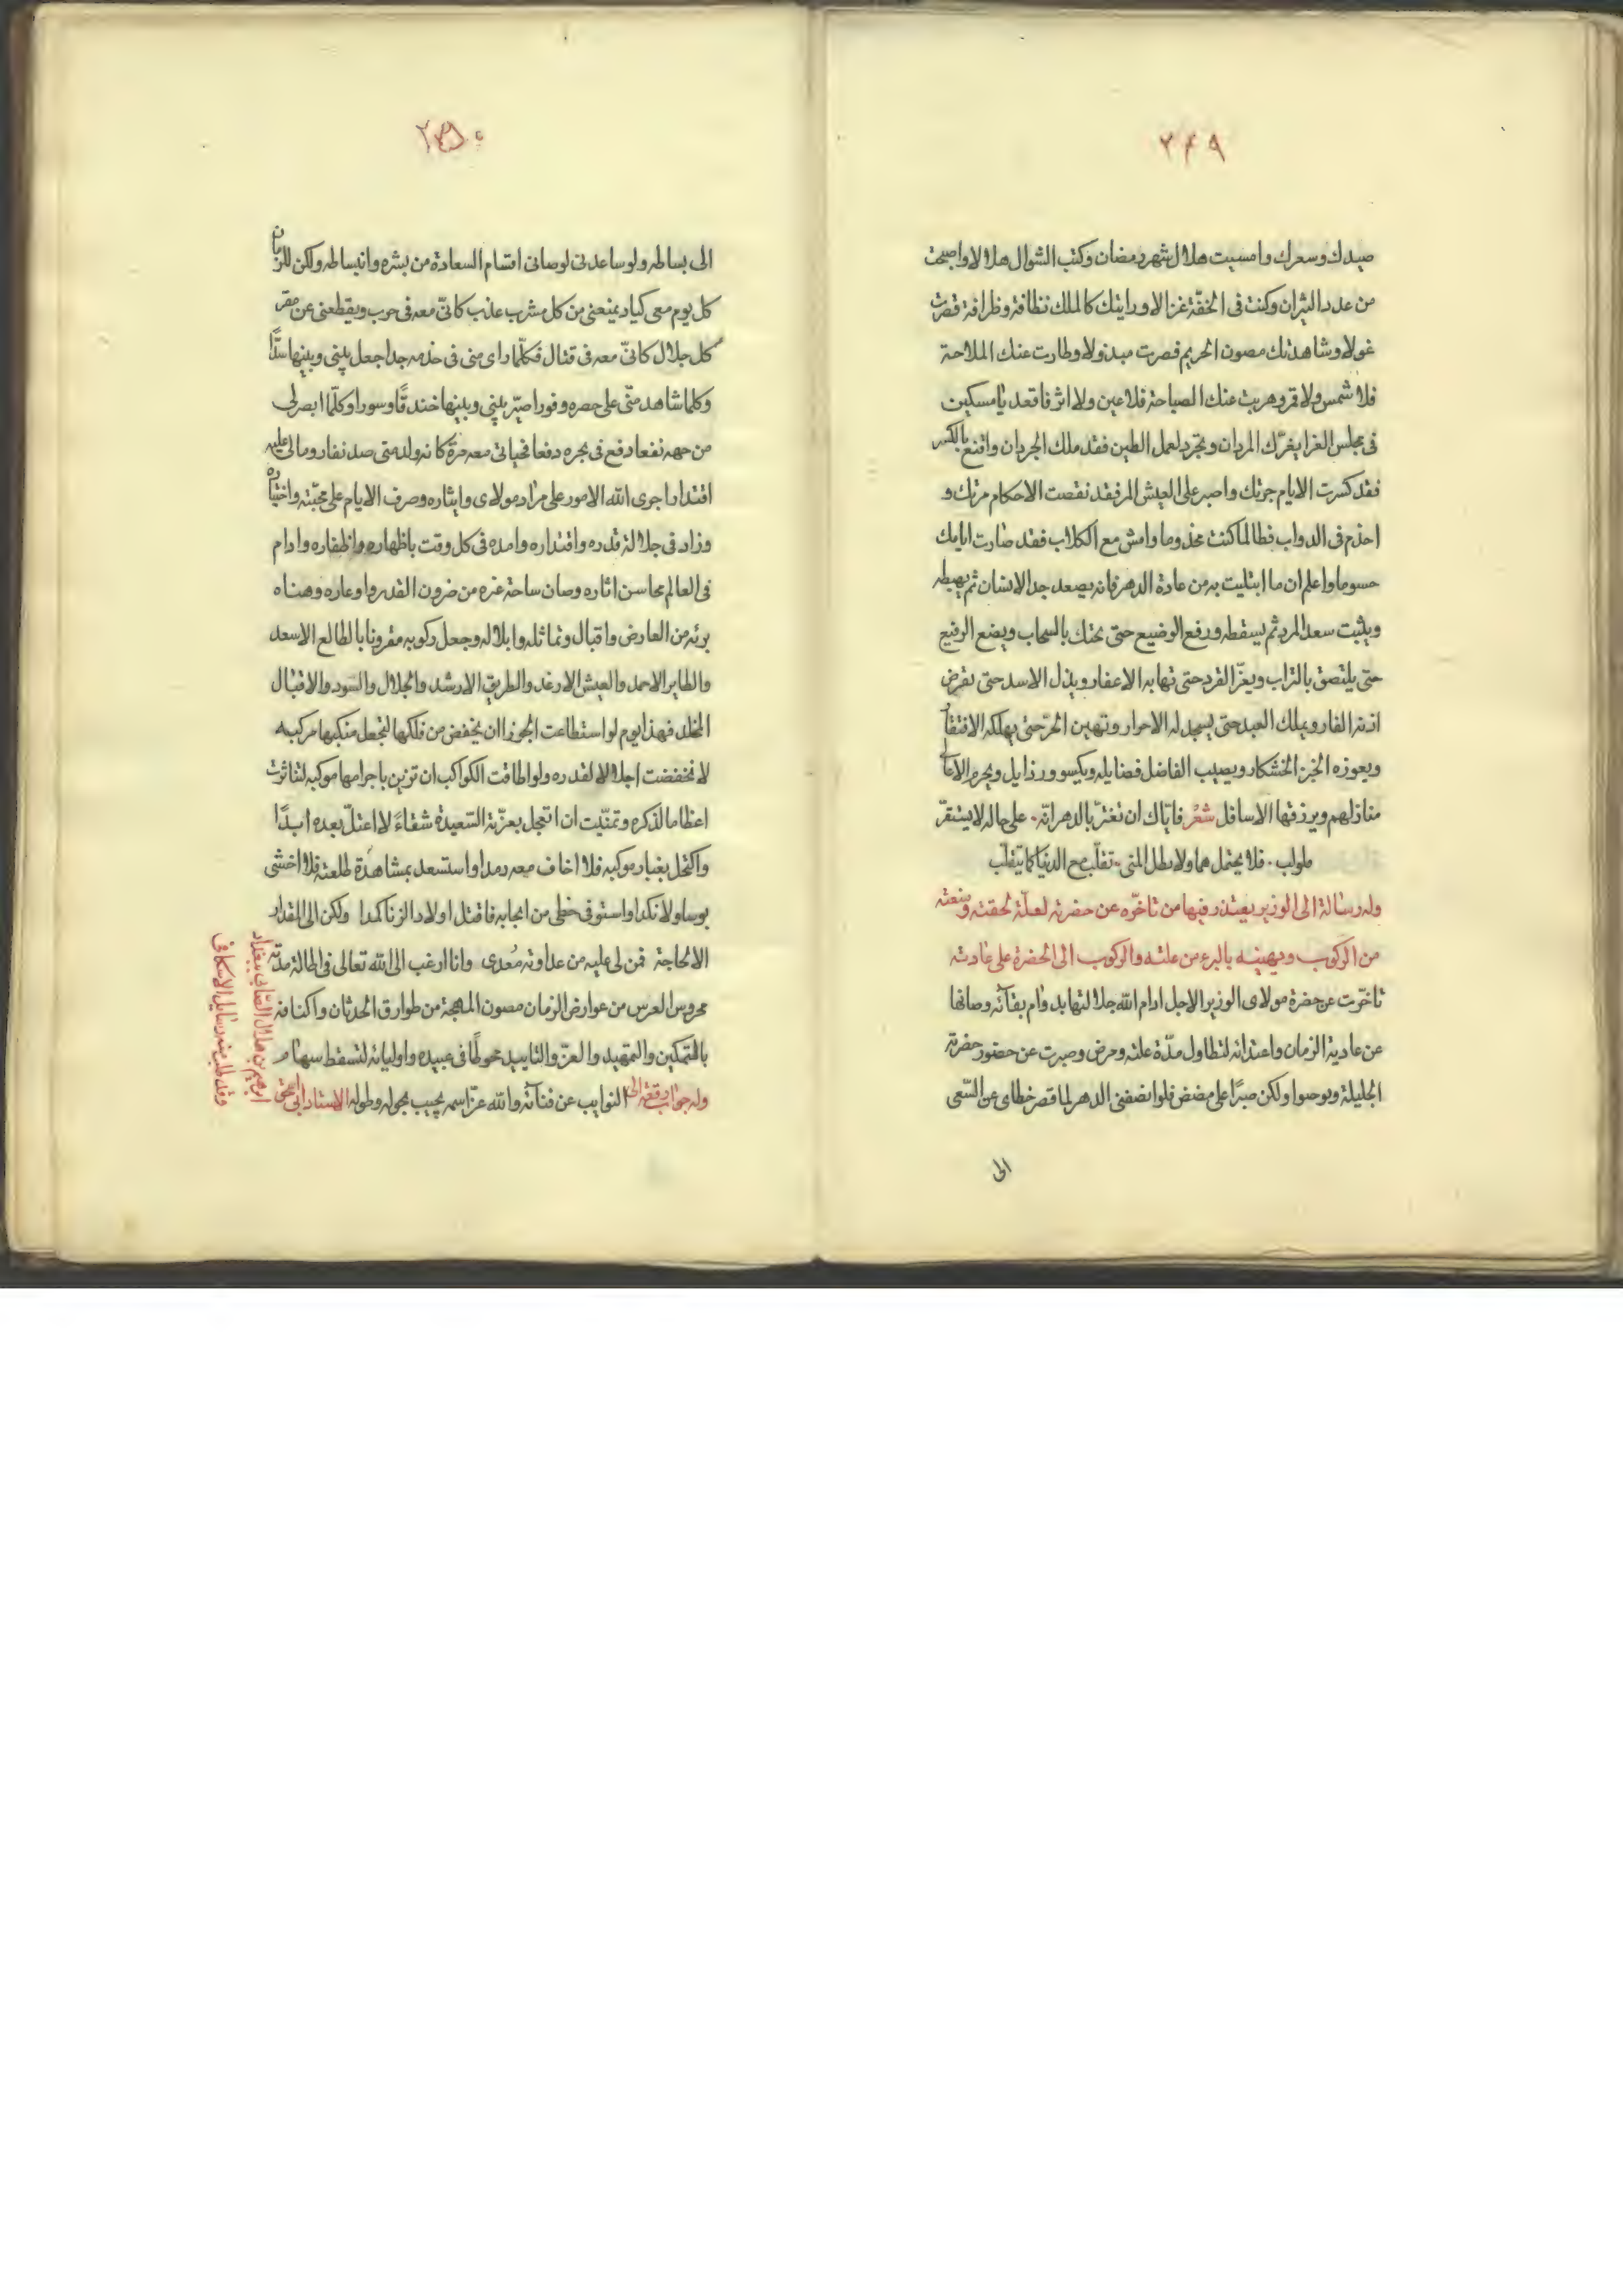 ٢٤٩
صيدك وسعرك وامسيت هلال شهر رمضان وكنت الشوال هلالا واصبحت
من عدد الثيران وكنت فى الخفّة غزالا ورايتك كالملك نظافة وظرافة فصرت
غولا وشاهدتك مصون الحريم فصرت مبذولا وطارت عنك الملاحة
فلا شمس ولا قمر وهربت عنك الصباحة فلا عين ولا اثر فاقعد يا مسكين
فى مجلس العزا بغرّك المردان وتجرد لعمل الطين فقد ملك الجردان واقنع بالكسر
فقد كسرت الايام جرتك واصبر على العيش المر فقد نقصت الاحكام مرتك و
اخذم فى الدواب فطالما كنت مخذوما وامش مع الكلاب فقد صارت ايامك
حسوما واعلم ان ما ابتليت به من عادة الدهر فانه يصعد جد الانسان ثم يهبطه
ويثبت سعد المرء ثم يسقطه ورفع الوضيع حتى يحتك بالسحاب ويضع الرفيع
حتى يلتصق بالتراب ويعزّ القرد حتى تهابه الاعفار ويذل الاسد حتى تقرض
اذنه الفار ويملك العبد حتى يسجد له الاحرار وتهين الحرّ حتى يهلكه الافتقار
ويعوزه الخبز الخشكار ويصيب الفاضل فضايله ويكسو رذايل ويحرم الاعالى
منازلهم ويرزقها الاسافل شعر فاياك ان تغترّ بالدهر انّه. على حاله لا يستقرّ
طولب. فلا يحتمل هما ولا بطل المنى. تقلّب مع الدنيا كما يتقلّب
وله رسالة الى الوزير يعتذر فيها من تاخّره عن حضرته لعلّة لحقته ومنعته
من الركوب ويهنيه بالبرء من علته والركوب الى الحضرة على عادته
تاخّرت عن حضرة مولاى الوزير الاجل ادام الله جلالتها بدوام بقائه وصانها
عن عادية الزمان واعتدائه لتطاول مدّة علته وحرض وصبرت عن حضور حضرته
الجليلة وبوصوا ولكن صبرًا على مضض فلو انصفنى الدهر لما قصر خطاى عن السّعى
الى
٢٥٠
الى بساطه ولو ساعدنى لوصانى اقسام السعادة من بشره وانبساطه ولكن للزمان
كل يوم معى كياد يمنعنى من كل مشرب عذب كانّى معه فى حرب ويقطعنى عن مقر
كل جلال كانّى معه فى قتال فكلّما راى منى فى خدمه جدا جعل بينى وبينها سدًّا
وكلما شاهد منّى على حصره وفورا صيّر بينى وبينها خندقًا وسورا وكلّما ابصر لى
من جهه نفعا رفع فى بحره دفعا فحياتى معه مرة كانه ولد متى صد نفار ومالى عليه
اقتدار اجرى الله الامور على مراد مولاى وايثاره وصرف الايام على محبّته واختياره
وزاد فى جلالة قدره واقتداره وامده فى كل وقت باظهاره واظفاره وادام
فى العالم محاسن اثاره وصان ساحة عزه من ضرون القدر واوعاره وهناه
برئه من العارض واقبال وتماثله وابلاله وجعل ركوبه مقرونا بالطالع الاسعد
والطاير الاحمد والعيش الارغد والطريق الارشد والجلال والسود والاقبال
المخلد فهذا يوم لو استطاعت الجوزا ان ينخفض من فلكها لتجعل منكبها مركبه
لانخفضت اجلالا لقدره ولو اطاقت الكواكب ان تزين باجرامها موكبه لتناثرت
اعظاما لذكره وتمنّيت ان اتجل بعزّته السّعيدة شفاءً لا اعتلّ بعده ابدًا
واكتحل بغبار موكبه فلا اخاف معه رمدا واستسعد بمشاهدة طلعته فلا اخشى
بوسا ولا نكدا واستوفى حظى من ايجابه فاقتل اولاد الزنا كمدا ولكن الى المقدار
الالحاجة فمن لى عليه من عداوته مُعدى وانا ارغب الى الله تعالى فى اطالة مدّته
محروس العرس من عوارض الزمان مصون المهجة من طوارق الحدثان واكنافه
بالتمكين والتمهيد والعزّ والتاييد حوطًا فى عبيده واوليائه لتسقط سهام
وله جواب رقعة الى النوايب عن فنائه والله عزّ اسمه يجيب بحوله وطوله الاستاد ابى اسحق
ابرهيم بن هلال الصّابى ببغداد
وقد طلب منه رسايل الاسكافى